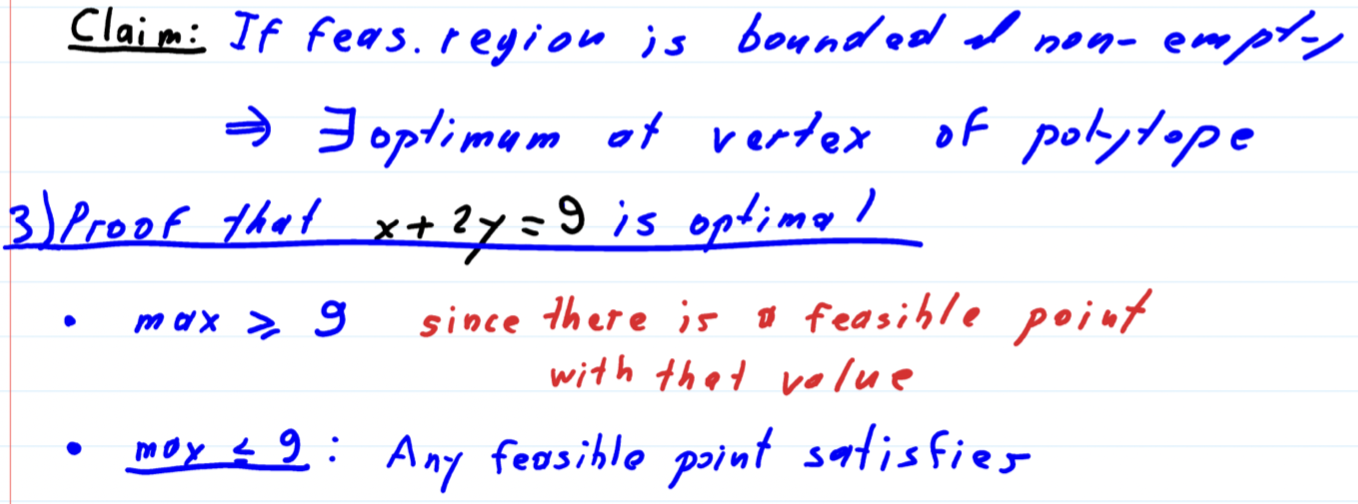 Claim: If feas. region is bounded & non-empty
⇒ ∃ optimum at vertex of polytope
3) Proof that x + 2y = 9 is optimal
• max ≥ 9 since there is a feasible point
with that value
• max ≤ 9: Any feasible point satisfies